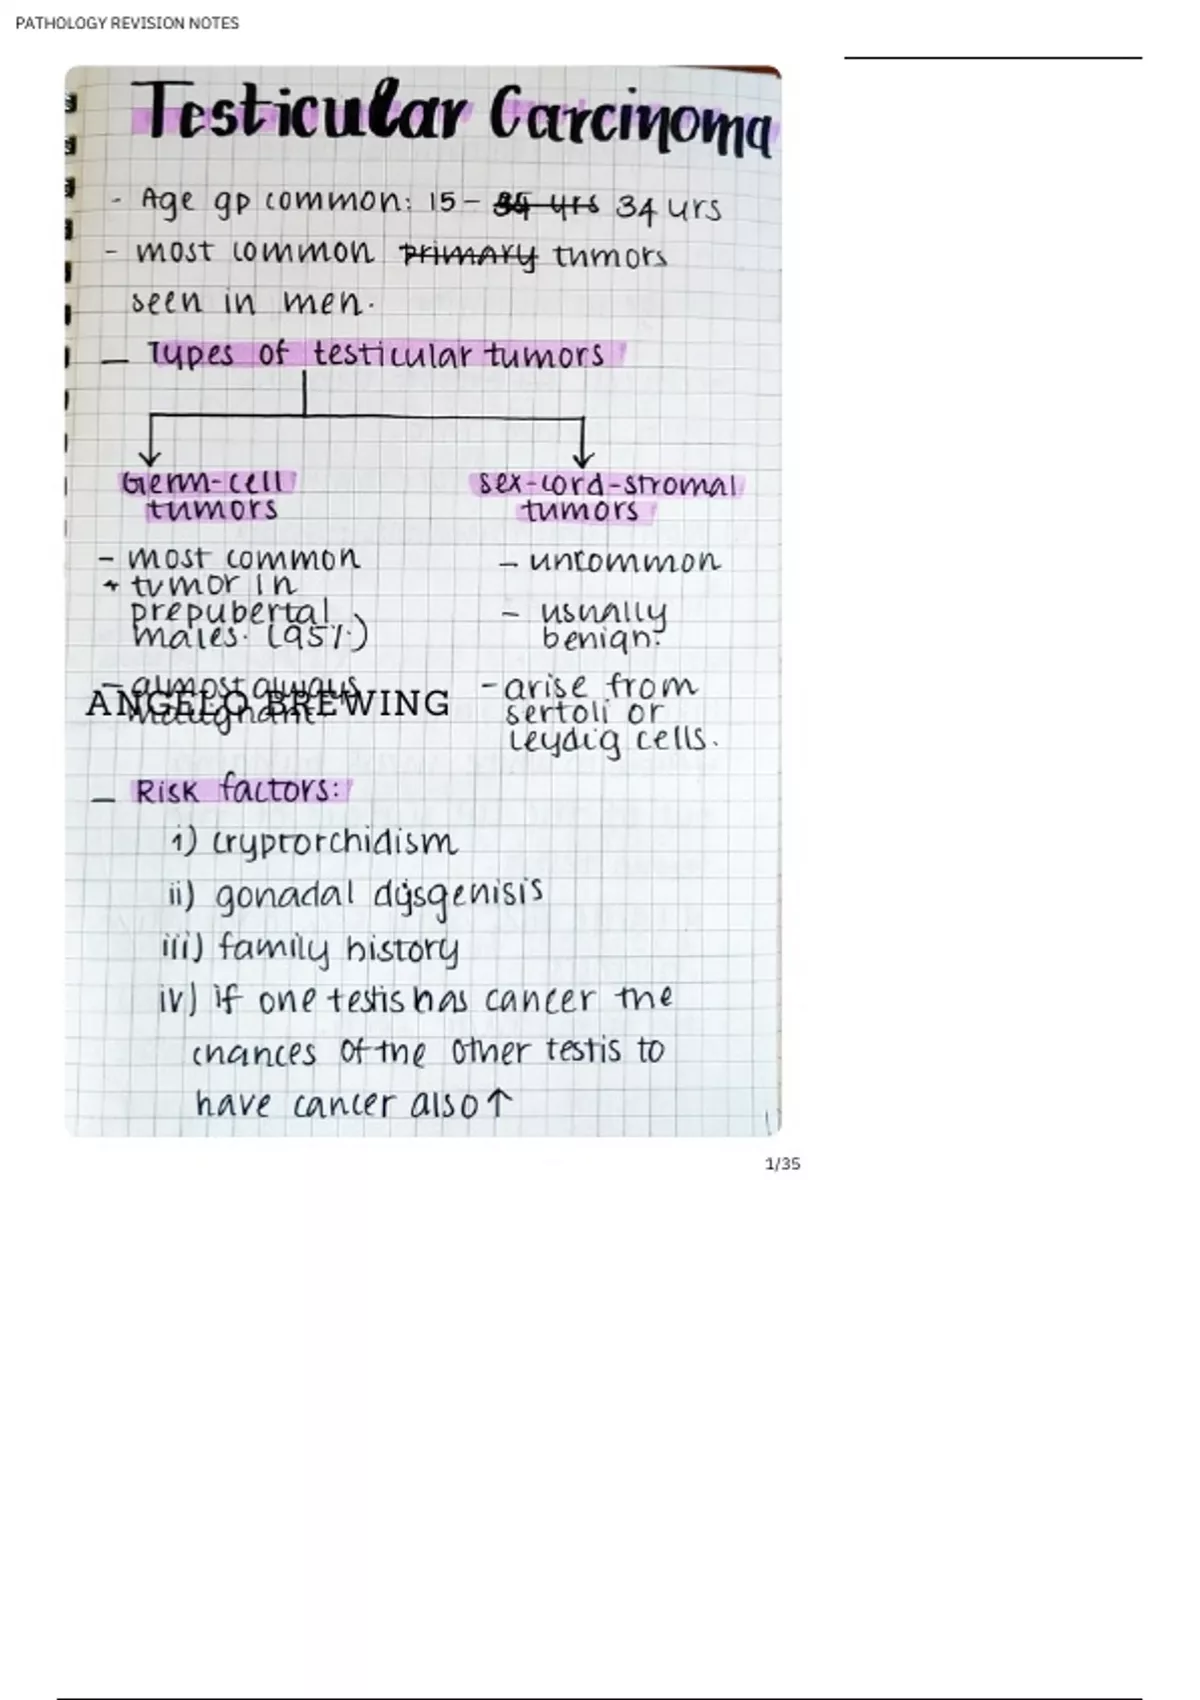 PATHOLOGY REVISION NOTES
Testicular Carcinoma
- Age gp common: 15- 34 yrs
- most common primary tumors
seen in men.
- Types of testicular tumors
Germ-cell
tumors
- most common
tumor in
prepubertal
males. (95%)
- almost always
malignant
sex-cord-stromal
tumors
- uncommon
- usually
benign.
- arise from
sertoli or
leydig cells.
ANGELO BREWING
- Risk factors:
i) cryptorchidism
ii) gonadal dysgenisis
iii) family history
iv) if one testis has cancer the
chances of the other testis to
have cancer also ↑
1/35